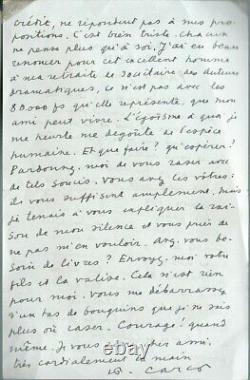 crédit, ne répondent pas à mes pro-
positions. C'est bien triste. Chacun
ne pense plus qu'à soi. J'ai eu beau
renoncer pour cet excellent homme
à ma retraite de sociétaire des auteurs
dramatiques, ce n'est pas avec les
80.000 frs qu'elle représente, que mon
ami peut vivre. L'égoïsme à quoi je
me heurte me dégoûte de l'espèce
humaine. Et que faire? qu'espérer?
Pardonnez-moi de vous raser avec
de tels soucis. Vous avez les vôtres:
ils vous suffisent amplement, mais
je tenais à vous expliquer la rai-
son de mon silence et vous prier de
ne pas m'en vouloir. Avez-vous be-
soin de livres? Envoyez-moi votre
fils et la valise. Cela n'est rien
pour moi. Vous me débarrassez
d'un tas de bouquins que je ne sais
plus où caser. Courage! quand
même. Je vous serre, cher ami,
très cordialement la main
F. Carco
www.ebay.com